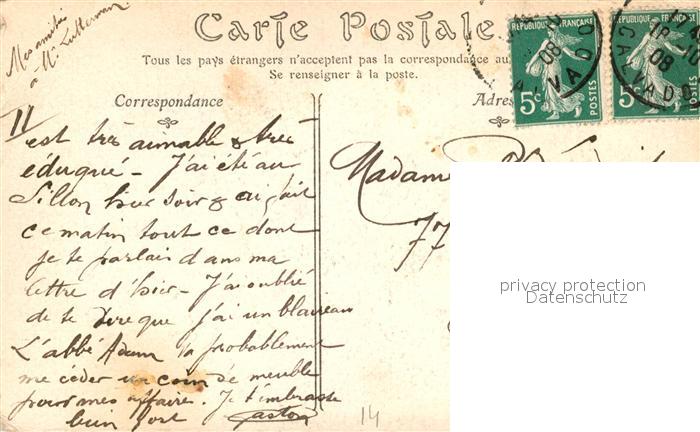 Mes amitiés
à Mr
Carte Postale
Tous les pays étrangers n'acceptent pas la correspondance au
Se renseigner à la poste.
Correspondance
Adres
RÉPUBLIQUE FRANÇAISE
5c
POSTES
08
CALVADOS
RÉPUBLIQUE FRANÇAISE
5c
POSTES
08
CALVADOS
II
est très aimable & très
éduqué - J'ai été au
Sillon hier soir & ai fait
ce matin tout ce dont
je te parlais dans ma
lettre d'hier - J'ai oublié
de te dire que j'ai un blaireau
L'abbé Adam va probablement
me céder un coin de meuble
pour mes affaires. Je t'embrasse
bien fort Gaston
14
Madame
77
privacy protection
Datenschutz